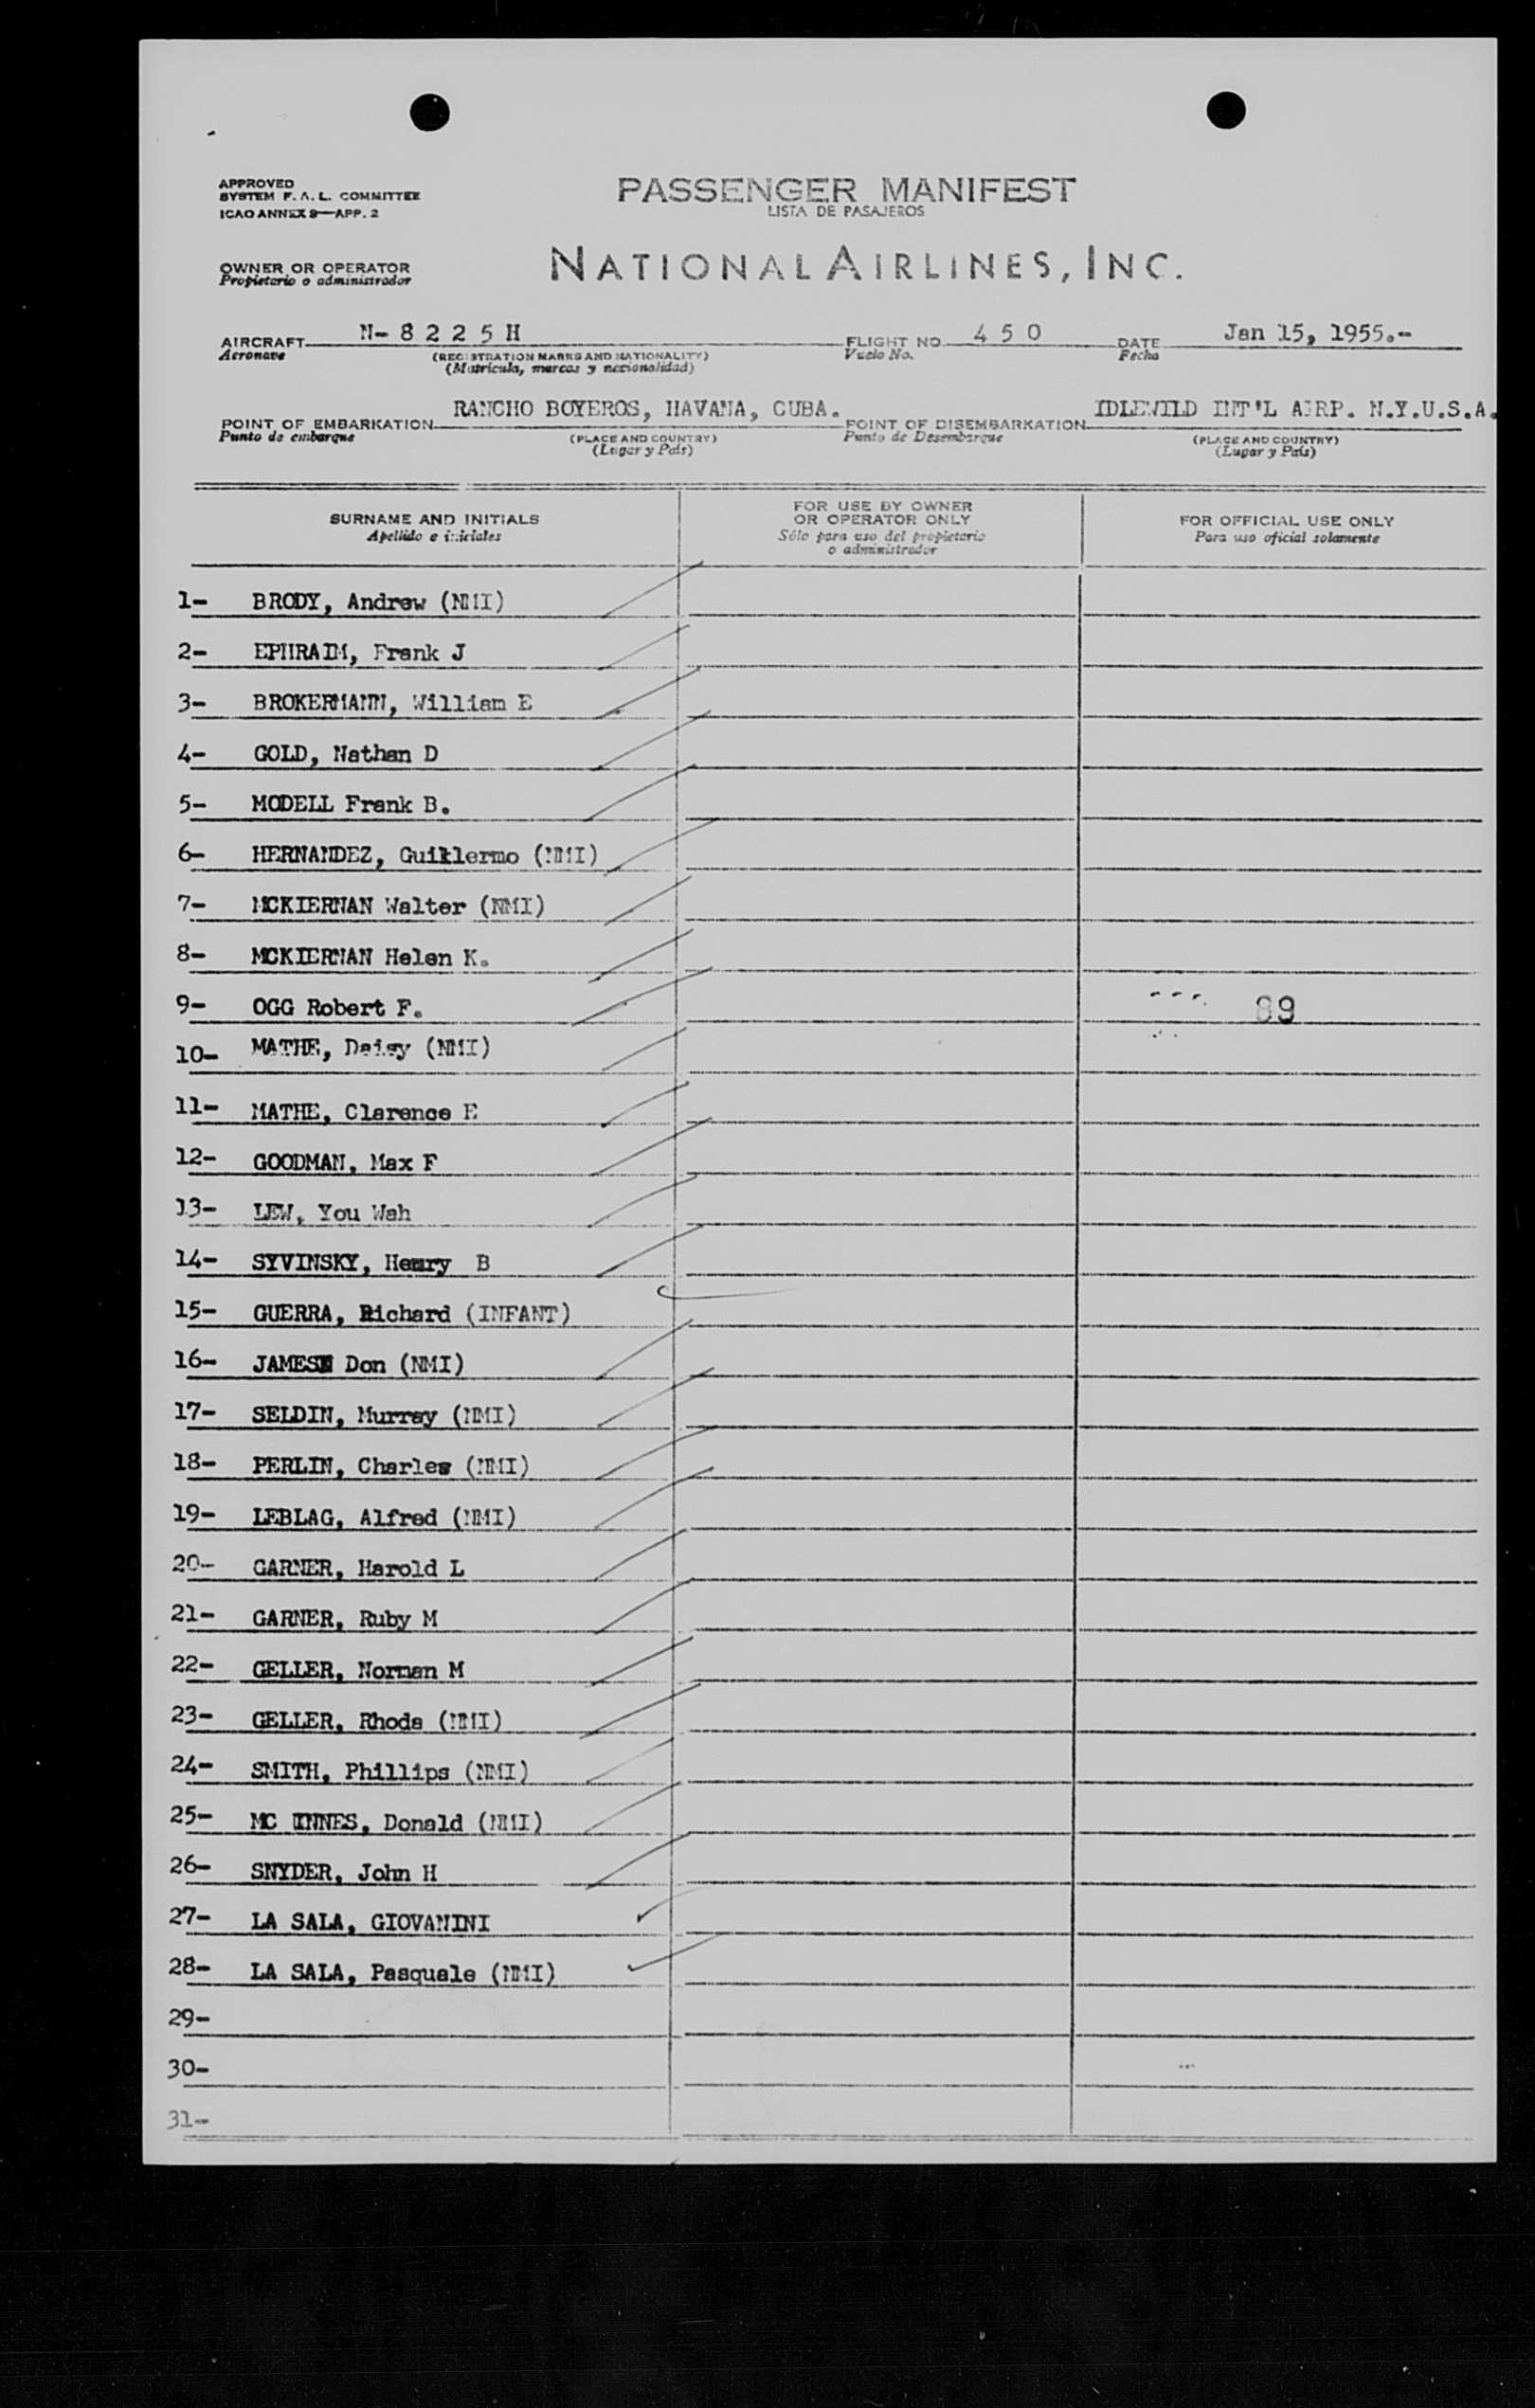 APPROVED
SYSTEM F. A. L. COMMITTEE
ICAO ANNEX 9—APP. 2
PASSENGER MANIFEST
LISTA DE PASAJEROS
OWNER OR OPERATOR
Propietario o administrador
NATIONAL AIRLINES, INC.
AIRCRAFT N- 8 2 2 5 H FLIGHT NO. 4 5 0 DATE Jan 15, 1955.-
Aeronave (REGISTRATION MARKS AND NATIONALITY) Vuelo No. Fecha
(Matricula, marcas y nacionalidad)
POINT OF EMBARKATION RANCHO BOYEROS, HAVANA, CUBA. POINT OF DISEMBARKATION IDLEWILD INT'L AIRP. N.Y.U.S.A.
Punto de embarque (PLACE AND COUNTRY) Punto de Desembarque (PLACE AND COUNTRY)
(Lugar y País) (Lugar y País)
SURNAME AND INITIALS
Apellido e iniciales
FOR USE BY OWNER
OR OPERATOR ONLY
Sólo para uso del propietario
o administrador
FOR OFFICIAL USE ONLY
Para uso oficial solamente
1- BRODY, Andrew (NMI)
2- EPHRAIM, Frank J
3- BROKERMANN, William E
4- GOLD, Nathan D
5- MODELL Frank B.
6- HERNANDEZ, Guillermo (NMI)
7- MCKIERNAN Walter (NMI)
8- MCKIERNAN Helen K.
9- OGG Robert F. 89
10- MATHE, Daisy (NMI)
11- MATHE, Clarence E
12- GOODMAN, Max F
13- LEW, You Wah
14- SYVINSKY, Henry B
15- GUERRA, Richard (INFANT)
16- JAMES Don (NMI)
17- SELDIN, Murray (NMI)
18- PERLIN, Charles (NMI)
19- LEBLAG, Alfred (NMI)
20- GARNER, Harold L
21- GARNER, Ruby M
22- GELLER, Norman M
23- GELLER, Rhoda (NMI)
24- SMITH, Phillips (NMI)
25- MC INNES, Donald (NMI)
26- SNYDER, John H
27- LA SALA, GIOVANINI
28- LA SALA, Pasquale (NMI)
29-
30-
31-